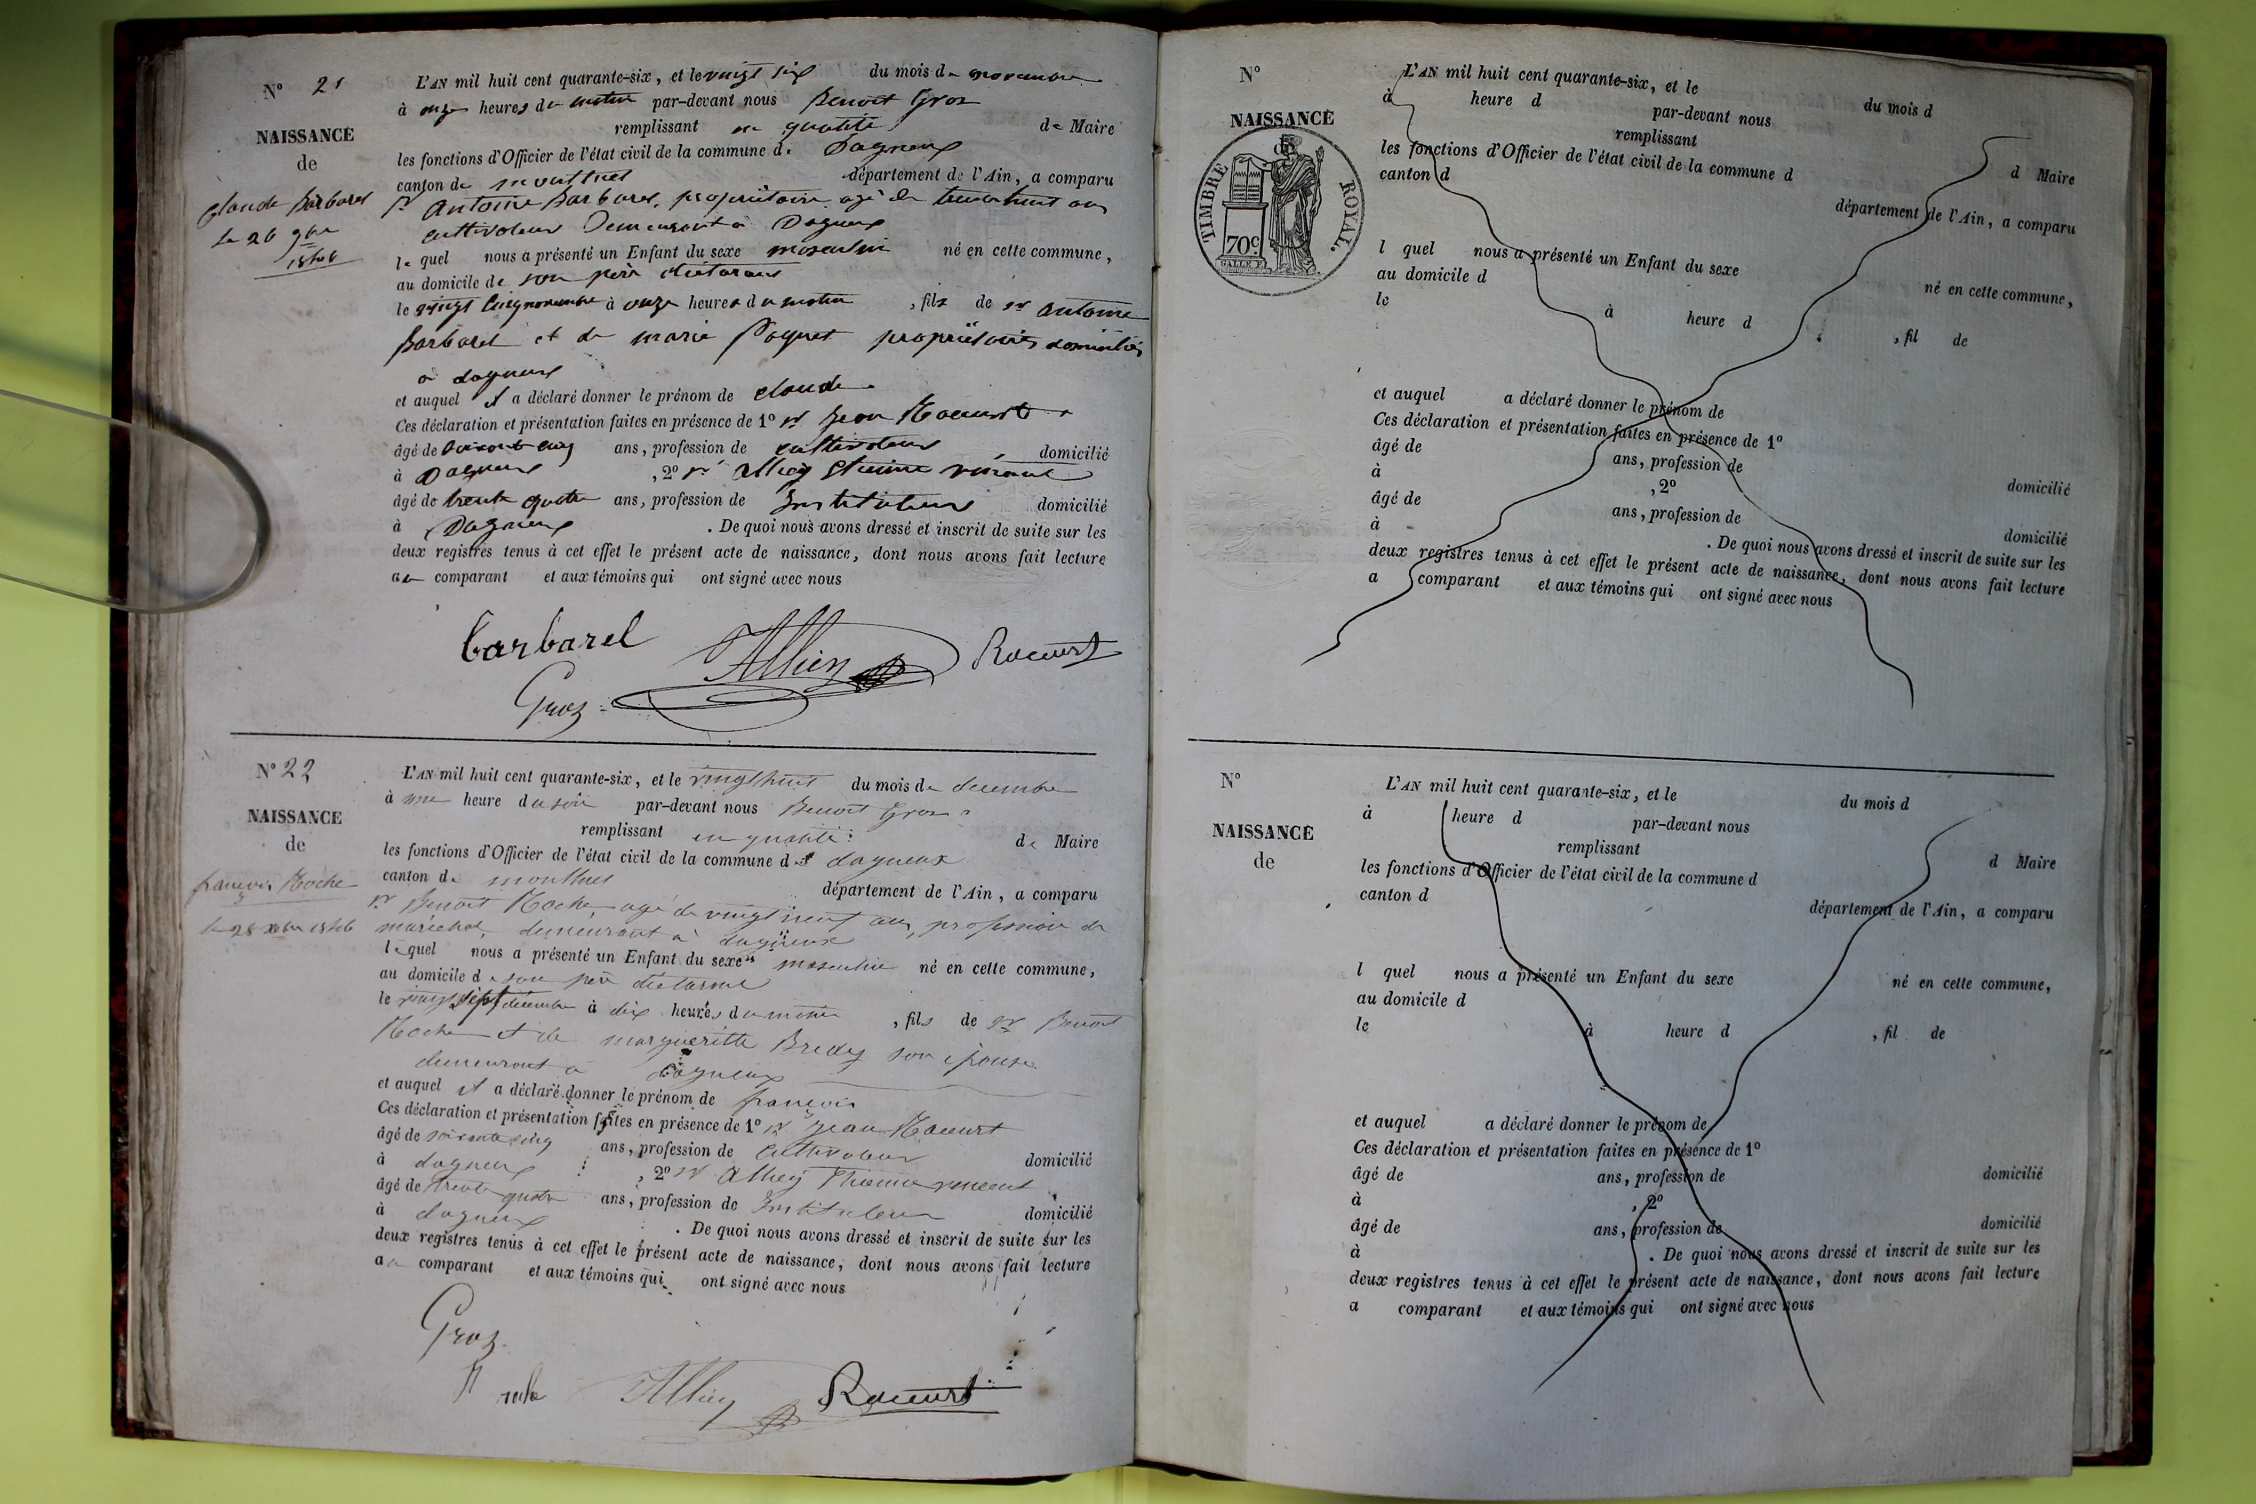 N° 21
NAISSANCE
de
Claude Barbarel
le 26 9bre
1846
L'AN mil huit cent quarante-six, et le vingt six du mois de novembre
à onze heures du matin par-devant nous Benoit Groz
remplissant en qualité de Maire
les fonctions d'Officier de l'état civil de la commune de Dagneux
canton de montluel département de l'Ain, a comparu
sr Antoine Barbarel, propriétaire agé de trente huit ans
cultivateur Demeurant à Dagneux
le quel nous a présenté un Enfant du sexe masculin né en cette commune,
au domicile de son père déclarant
le vingt cinq novembre à onze heures du matin, fils de sr antoine
Barbarel et de marie Paquet propriétaires domiciliés
à dagneux
et auquel il a déclaré donner le prénom de claude
Ces déclaration et présentation faites en présence de 1° sr Jean Racurt
âgé de soixante cinq ans, profession de cultivateur domicilié
à Dagneux, 2° sr Alliey Etienne vincent
âgé de trente quatre ans, profession de Instituteur domicilié
à Dagneux. De quoi nous avons dressé et inscrit de suite sur les
deux registres tenus à cet effet le présent acte de naissance, dont nous avons fait lecture
au comparant et aux témoins qui ont signé avec nous
barbarel Alliey Racurt
Groz
N° 22
NAISSANCE
de
françois Roche
le 28 xbre 1846
L'AN mil huit cent quarante-six, et le vingt huit du mois de decembre
à une heure du soir par-devant nous Benoit Groz
remplissant en qualité de Maire
les fonctions d'Officier de l'état civil de la commune de dagneux
canton de montluel département de l'Ain, a comparu
sr Benoit Roche, agé de vingt neuf ans, profession de
maréchal, demeurant à dagneux
le quel nous a présenté un Enfant du sexe masculin né en cette commune,
au domicile de son père déclarant
le vingt sept décembre à dix heures du matin, fils de sr Benoit
Roche et de margueritte Bredy son épouse
demeurant à dagneux
et auquel il a déclaré donner le prénom de françois
Ces déclaration et présentation faites en présence de 1° sr Jean Racurt
âgé de soixante cinq ans, profession de cultivateur domicilié
à dagneux, 2° sr Alliey Etienne vincent
âgé de trente quatre ans, profession de Instituteur domicilié
à dagneux. De quoi nous avons dressé et inscrit de suite sur les
deux registres tenus à cet effet le présent acte de naissance, dont nous avons fait lecture
au comparant et aux témoins qui ont signé avec nous
Groz
Alliey Racurt
N°
NAISSANCE
TIMBRE ROYAL.
70c
GALLE F.
L'AN mil huit cent quarante-six, et le du mois d
à heure d par-devant nous
remplissant d Maire
les fonctions d'Officier de l'état civil de la commune d
canton d département de l'Ain, a comparu
l quel nous a présenté un Enfant du sexe né en cette commune,
au domicile d
le à heure d, fil de
et auquel a déclaré donner le prénom de
Ces déclaration et présentation faites en présence de 1°
âgé de ans, profession de domicilié
à, 2°
âgé de ans, profession de domicilié
à. De quoi nous avons dressé et inscrit de suite sur les
deux registres tenus à cet effet le présent acte de naissance, dont nous avons fait lecture
a comparant et aux témoins qui ont signé avec nous
N°
NAISSANCE
de
L'AN mil huit cent quarante-six, et le du mois d
à heure d par-devant nous
remplissant d Maire
les fonctions d'Officier de l'état civil de la commune d
canton d département de l'Ain, a comparu
l quel nous a présenté un Enfant du sexe né en cette commune,
au domicile d
le à heure d, fil de
et auquel a déclaré donner le prénom de
Ces déclaration et présentation faites en présence de 1°
âgé de ans, profession de domicilié
à, 2°
âgé de ans, profession de domicilié
à. De quoi nous avons dressé et inscrit de suite sur les
deux registres tenus à cet effet le présent acte de naissance, dont nous avons fait lecture
a comparant et aux témoins qui ont signé avec nous